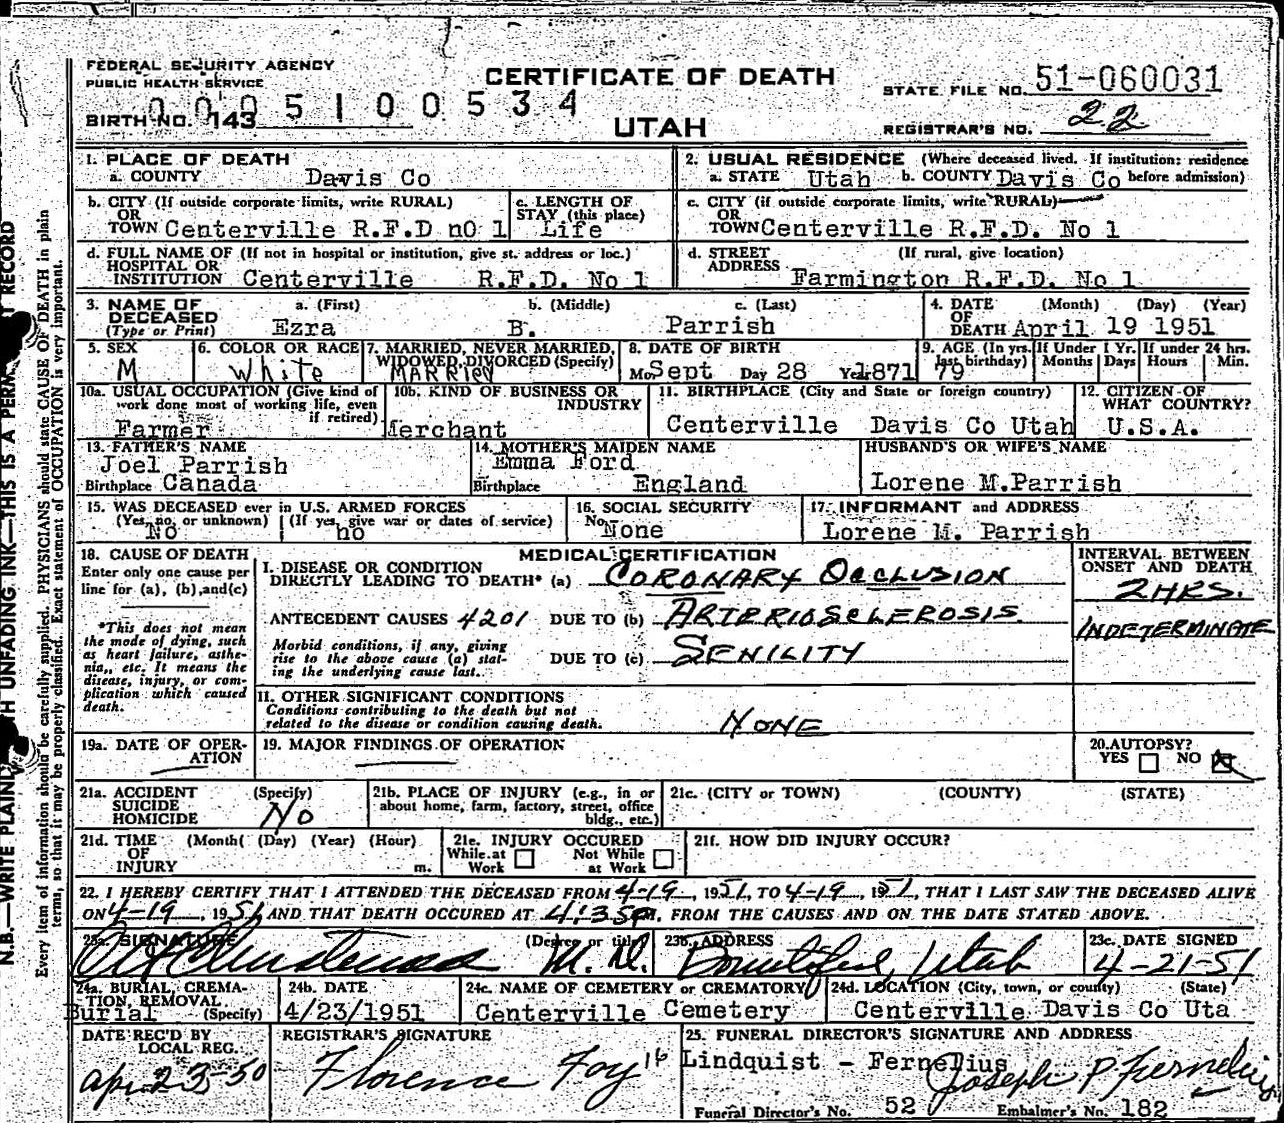 FEDERAL SECURITY AGENCY
PUBLIC HEALTH SERVICE
CERTIFICATE OF DEATH
STATE FILE NO. 51-060031
0005100534
BIRTH NO. 143
UTAH
REGISTRAR'S NO. 22
1. PLACE OF DEATH
a. COUNTY Davis Co
2. USUAL RESIDENCE (Where deceased lived. If institution: residence
a. STATE Utah b. COUNTY Davis Co before admission)
b. CITY (If outside corporate limits, write RURAL)
OR
TOWN Centerville R.F.D nO 1
c. LENGTH OF
STAY (this place)
Life
c. CITY (if outside corporate limits, write RURAL)
OR
TOWN Centerville R.F.D. No 1
d. FULL NAME OF (If not in hospital or institution, give st. address or loc.)
HOSPITAL OR
INSTITUTION Centerville R.F.D. No 1
d. STREET (If rural, give location)
ADDRESS Farmington R.F.D. No 1
3. NAME OF DECEASED (Type or Print)
a. (First) b. (Middle) c. (Last)
Ezra B. Parrish
4. DATE (Month) (Day) (Year)
OF
DEATH April 19 1951
5. SEX
M
6. COLOR OR RACE
White
7. MARRIED, NEVER MARRIED,
WIDOWED, DIVORCED (Specify)
MARRIED
8. DATE OF BIRTH
Mo. Sept Day 28 Yr. 1871
9. AGE (In yrs. last birthday)
79
If Under 1 Yr.
Months Days
If under 24 hrs.
Hours Min.
10a. USUAL OCCUPATION (Give kind of
work done most of working life, even
if retired)
Farmer
10b. KIND OF BUSINESS OR
INDUSTRY
Merchant
11. BIRTHPLACE (City and State or foreign country)
Centerville Davis Co Utah
12. CITIZEN OF
WHAT COUNTRY?
U.S.A.
13. FATHER'S NAME
Joel Parrish
Birthplace Canada
14. MOTHER'S MAIDEN NAME
Emma Ford
Birthplace England
HUSBAND'S OR WIFE'S NAME
Lorene M.Parrish
15. WAS DECEASED ever in U.S. ARMED FORCES
(Yes, no, or unknown) (If yes, give war or dates of service)
No no
16. SOCIAL SECURITY
No. None
17. INFORMANT and ADDRESS
Lorene M. Parrish
18. CAUSE OF DEATH
Enter only one cause per
line for (a), (b), and (c)
*This does not mean
the mode of dying, such
as heart failure, asthe-
nia, etc. It means the
disease, injury, or com-
plication which caused
death.
MEDICAL CERTIFICATION
I. DISEASE OR CONDITION
DIRECTLY LEADING TO DEATH* (a) CORONARY OCCLUSION
ANTECEDENT CAUSES 4201 DUE TO (b) ARTERIOSCLEROSIS
Morbid conditions, if any, giving
rise to the above cause (a) stat-
ing the underlying cause last.
DUE TO (c) SENILITY
INTERVAL BETWEEN
ONSET AND DEATH
2 HRS.
INDETERMINATE
II. OTHER SIGNIFICANT CONDITIONS
Conditions contributing to the death but not
related to the disease or condition causing death.
NONE
19a. DATE OF OPER-
ATION
19. MAJOR FINDINGS OF OPERATION
20. AUTOPSY?
YES NO X
21a. ACCIDENT (Specify)
SUICIDE
HOMICIDE No
21b. PLACE OF INJURY (e.g., in or
about home, farm, factory, street, office
bldg., etc.)
21c. (CITY or TOWN) (COUNTY) (STATE)
21d. TIME (Month) (Day) (Year) (Hour)
OF
INJURY m.
21e. INJURY OCCURED
While at Work Not While at Work
21f. HOW DID INJURY OCCUR?
22. I HEREBY CERTIFY THAT I ATTENDED THE DECEASED FROM 4-19, 1951, TO 4-19, 1951, THAT I LAST SAW THE DECEASED ALIVE
ON 4-19, 1951 AND THAT DEATH OCCURED AT 4:35 PM. FROM THE CAUSES AND ON THE DATE STATED ABOVE.
23a. SIGNATURE (Degree or title)
M.D.
23b. ADDRESS
Bountiful, Utah
23c. DATE SIGNED
4-21-51
24a. BURIAL, CREMA-
TION, REMOVAL
Burial (Specify)
24b. DATE
4/23/1951
24c. NAME OF CEMETERY or CREMATORY
Centerville Cemetery
24d. LOCATION (City, town, or county) (State)
Centerville Davis Co Uta
DATE REC'D BY
LOCAL REG.
Apr. 23-50
REGISTRAR'S SIGNATURE
Florence Foy 16
25. FUNERAL DIRECTOR'S SIGNATURE AND ADDRESS
Lindquist - Fernelius
Joseph P Fernelius
Funeral Director's No. 52 Embalmer's No. 182
Every item of information should be carefully supplied. PHYSICIANS should state CAUSE OF DEATH in plain
terms, so that it may be properly classified. Exact statement of OCCUPATION is very important.